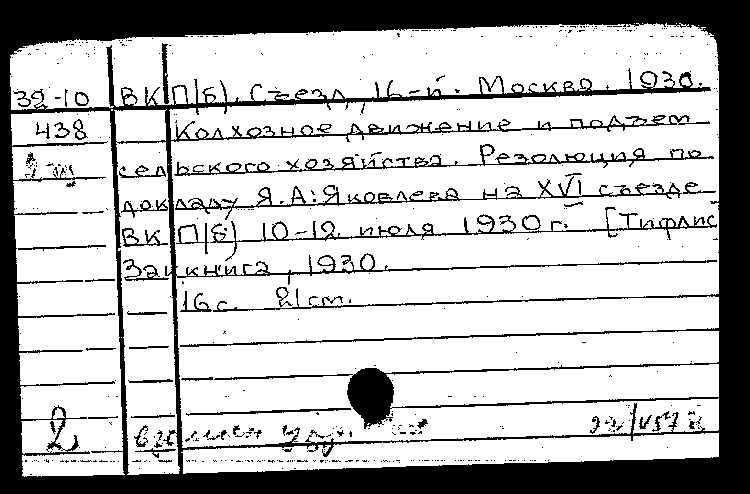 32-10 ВКП(б). Съезд, 16-й. Москва. 1930.
438 Колхозное движение и подъем
сельского хозяйства. Резолюция по
докладу Я.А. Яковлева на XVI съезде
ВКП(б) 10-12 июля 1930 г. [Тифлис
Заккнига, 1930.
16 с. 21 cm.
2